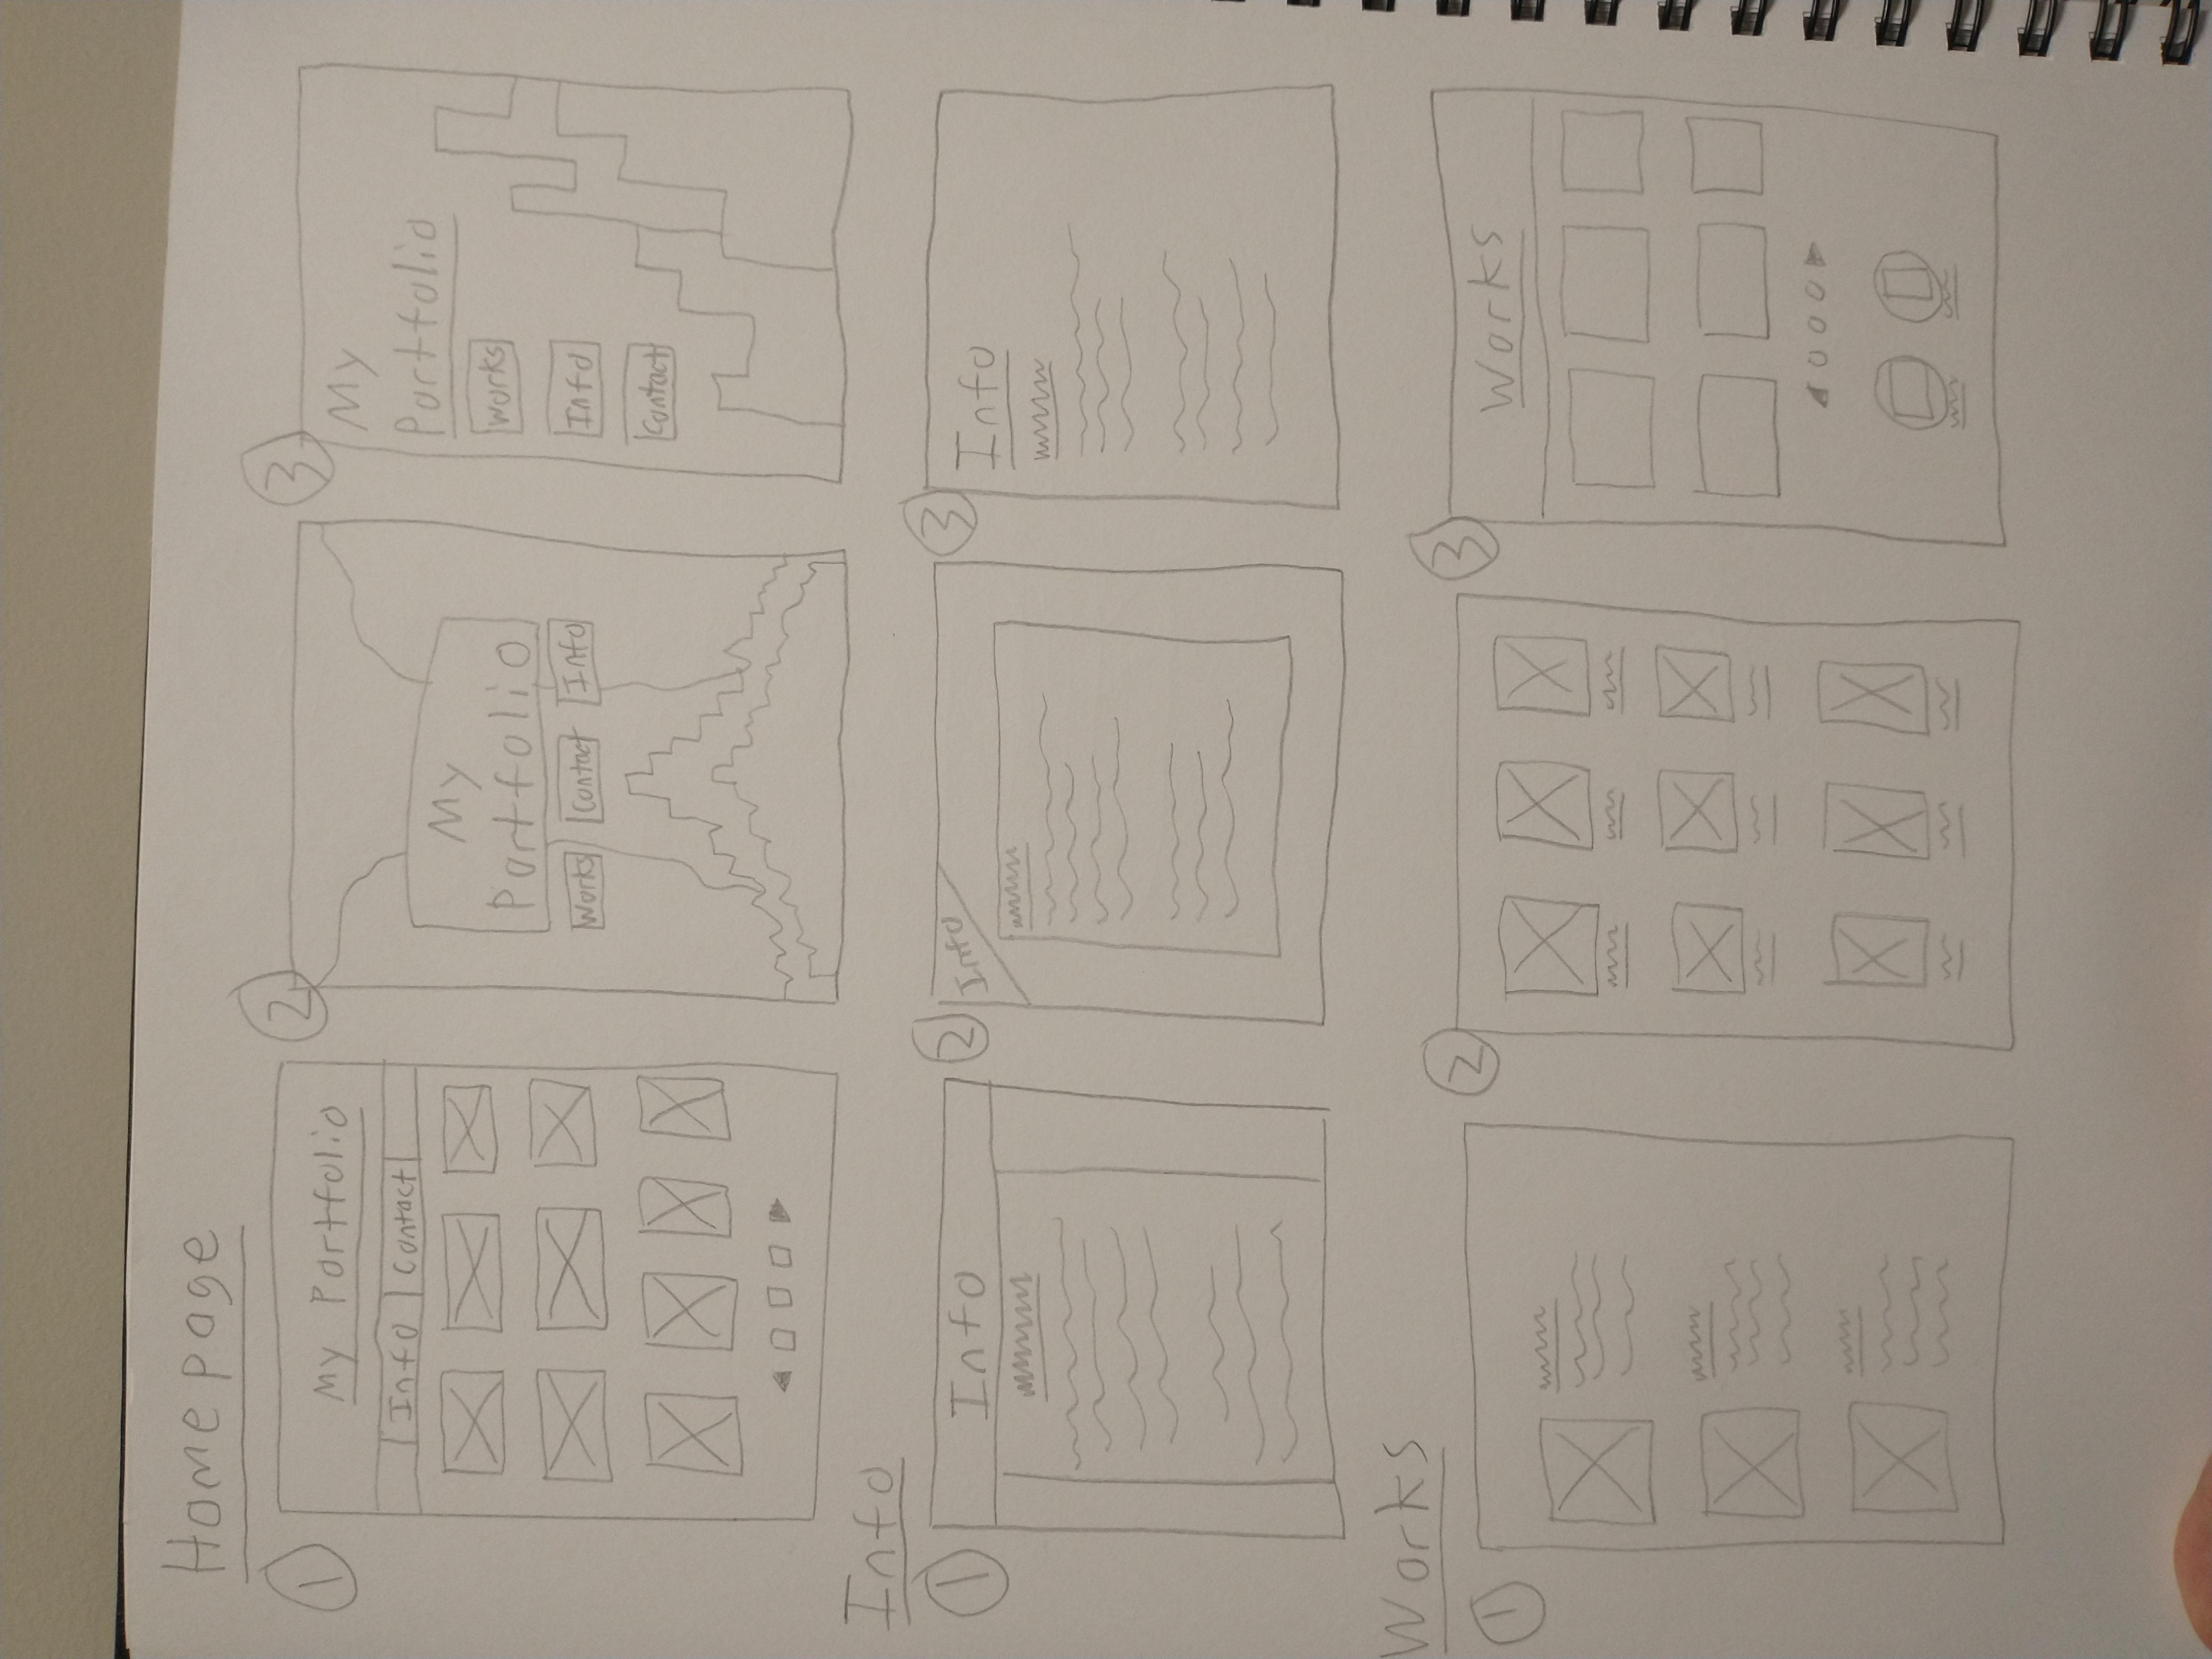 Homepage
1
My Portfolio
Info Contact
2
My
Portfolio
Works Contact Info
3
My
Portfolio
Works
Info
Contact
Info
1
Info
2
Info
3
Info
Works
1
2
3
Works